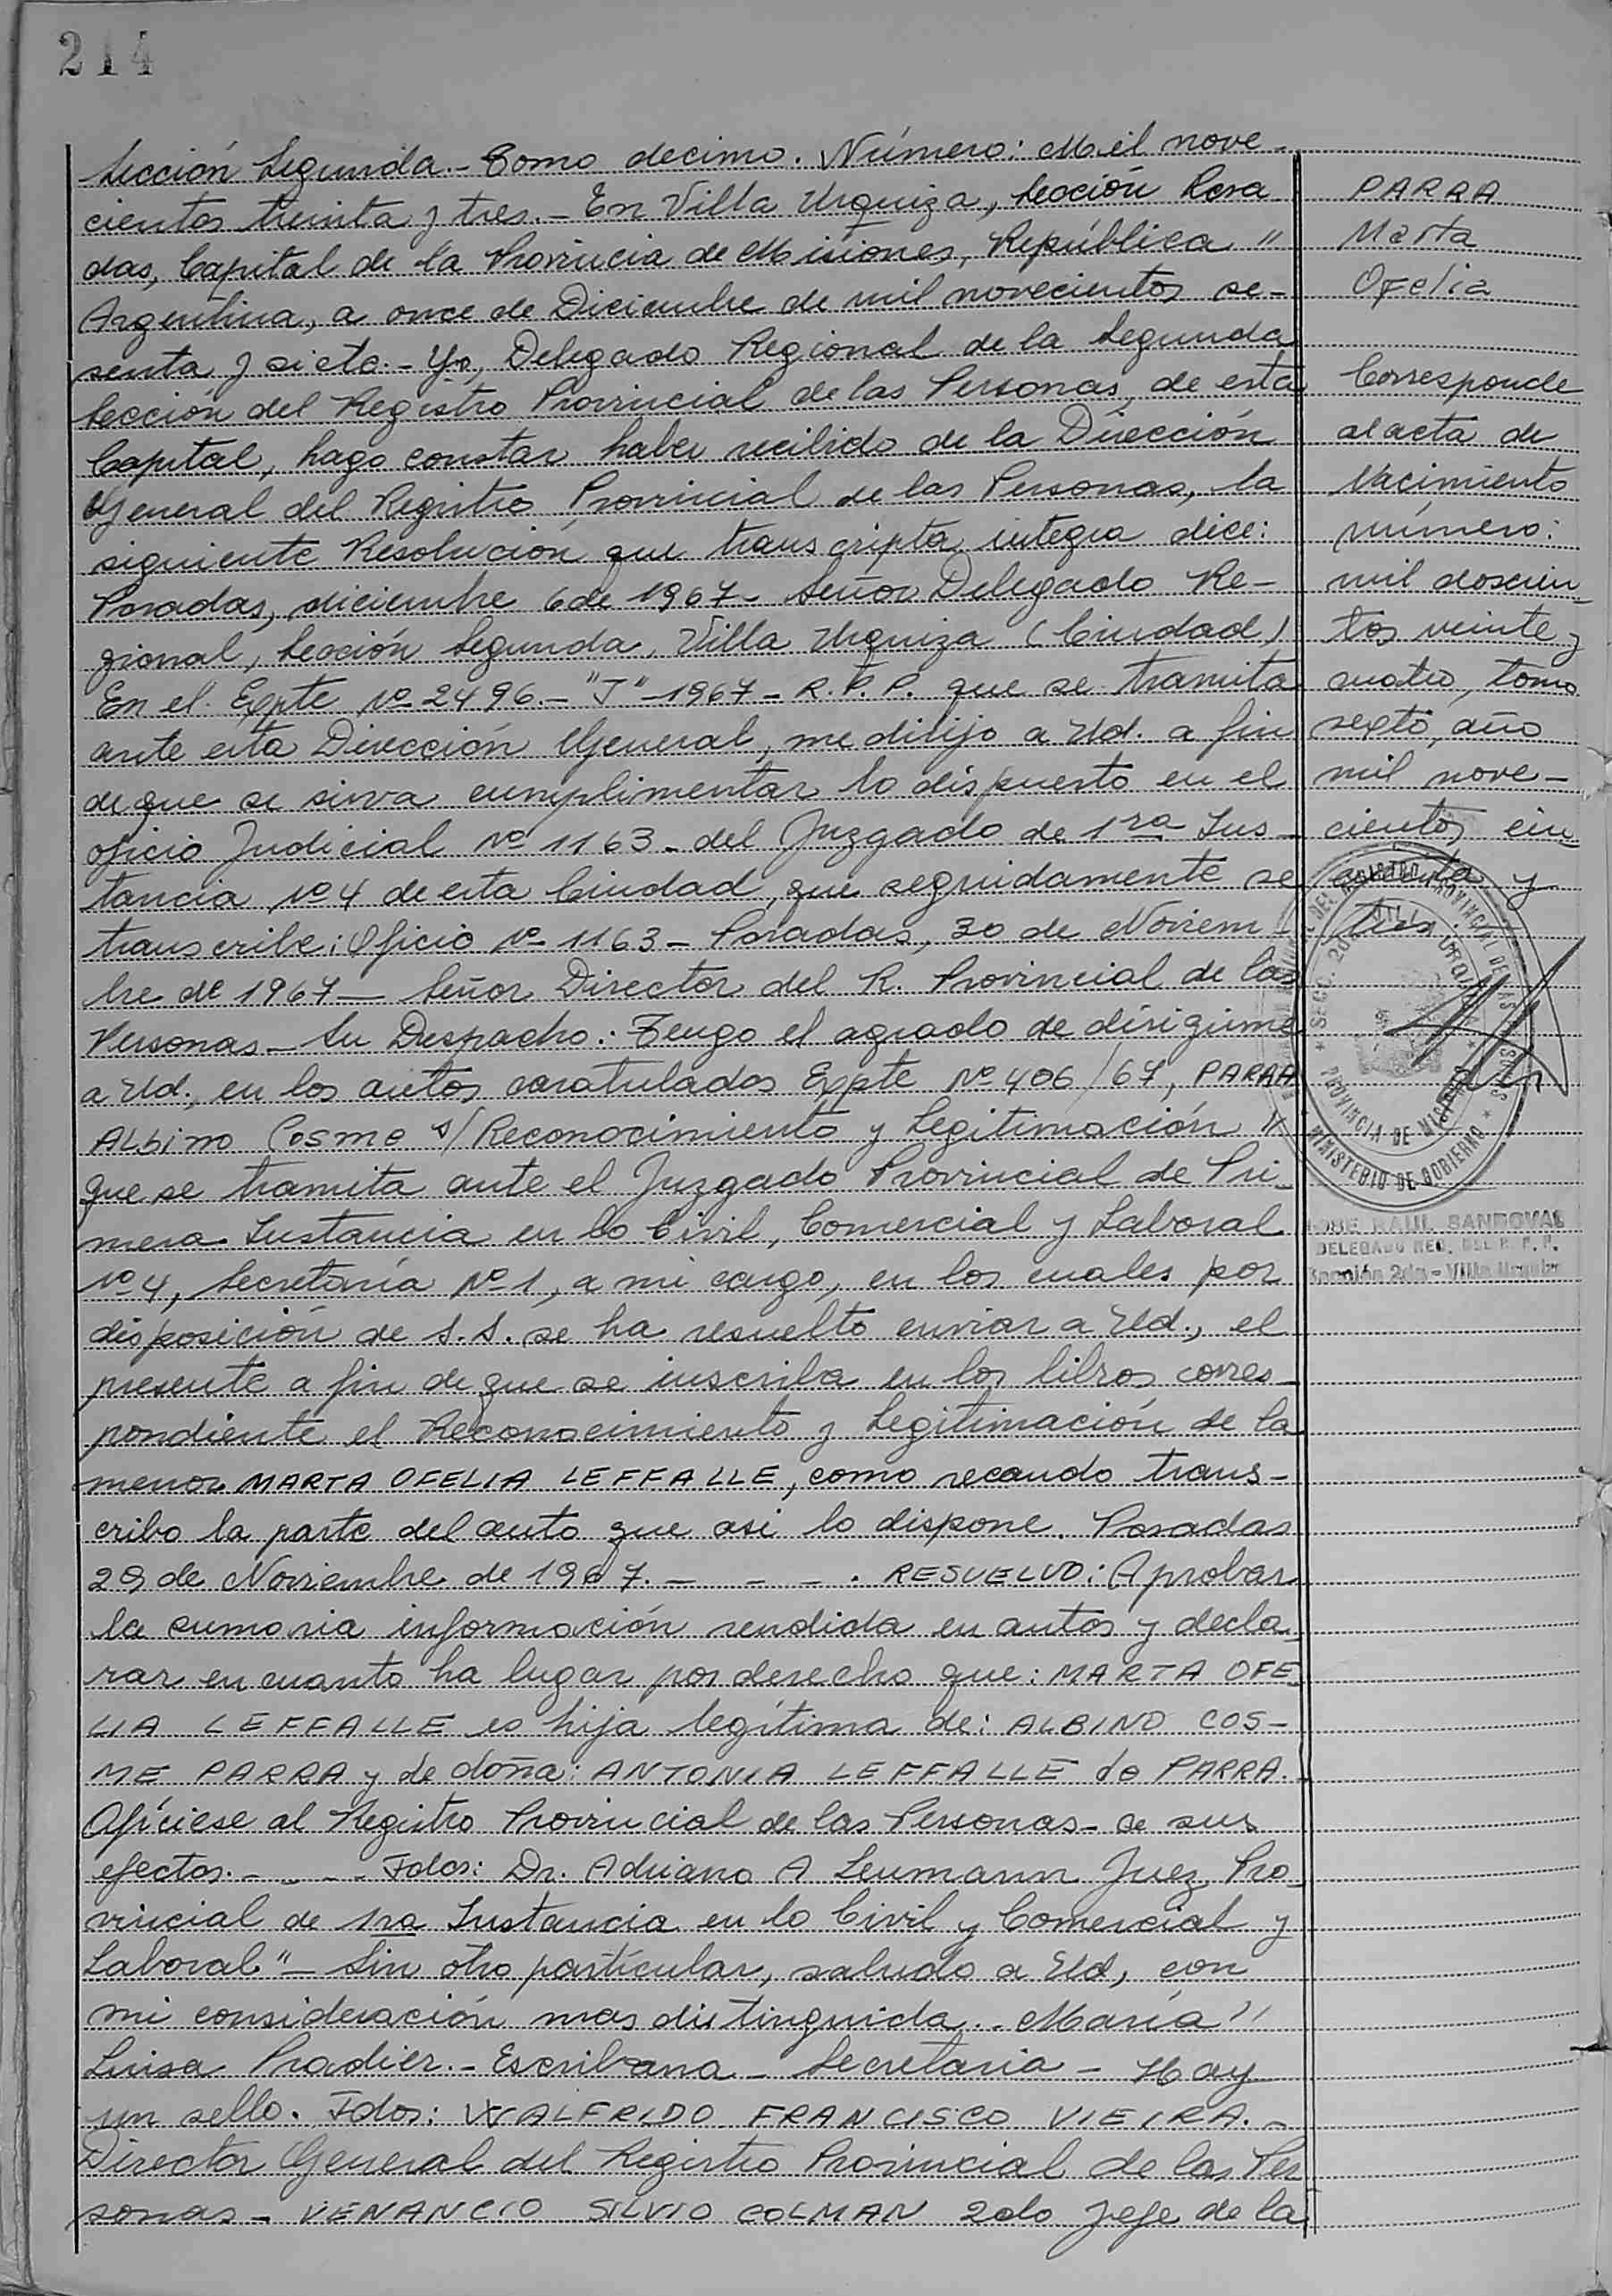 214
Sección Segunda.- Tomo decimo. Número: Mil nove-
cientos treinta y tres.- En Villa Urquiza, Sección Posa
das, Capital de la Provincia de Misiones, República "
Argentina, a once de Diciembre de mil novecientos se-
senta y siete.- Yo, Delegado Regional de la Segunda
Sección del Registro Provincial de las Personas, de esta
Capital, hago constar haber recibido de la Dirección
General del Registro Provincial de las Personas, la
siguiente Resolución que transcripta integra dice:
Posadas, diciembre 6 de 1967- Señor Delegado Re-
gional, Sección Segunda, Villa Urquiza (Ciudad)
En el Expte Nº 2496.- "J"-1967- R.P.P. que se tramita
ante esta Dirección General, me dirijo a Ud. a fin
de que se sirva cumplimentar lo dispuesto en el
oficio Judicial Nº 1163- del Juzgado de 1ra Ins-
tancia Nº 4 de esta Ciudad, que seguidamente se
transcribe: Oficio Nº 1163- Posadas, 30 de Noviem
bre de 1967- Señor Director del R. Provincial de las
Personas- Su Despacho: Tengo el agrado de dirigirme
a Ud., en los autos caratulados Expte Nº 406/67, PARRA
ALbino Cosme s/ Reconocimiento y Legitimación "
que se tramita ante el Juzgado Provincial de Pri-
mera Instancia en lo Civil, Comercial y Laboral
Nº 4, Secretaría Nº 1, a mi cargo, en los cuales por
disposición de S.S. se ha resuelto enviar a Ud., el
presente a fin de que se inscriba en los libros corres-
pondiente el Reconocimiento y Legitimación de la
menor MARTA OFELIA LEFFALLE, como recaudo trans-
cribo la parte del auto que asi lo dispone. Posadas
29 de Noviembre de 1967. - - - . RESUELVO: Aprobar
la sumaria información rendida en autos y decla-
rar en cuanto ha lugar por derecho que: MARTA OFE
LIA LEFFALLE es hija legítima de: ALBINO COS-
ME PARRA y de doña: ANTONIA LEFFALLE de PARRA.
Ofíciese al Registro Provincial de las Personas- a sus
efectos.- - - - Fdos: Dr. Adriano A Leumann Juez Pro-
vincial de 1ra Instancia en lo Civil y Comercial y
Laboral"- Sin otro particular, saludo a Ud, con
mi consideración mas distinguida.. María "
Luisa Pradier.- Escribana- Secretaria- Hay
un sello. Fdos: WALFRIDO FRANCISCO VIEIRA.-
Director General del Registro Provincial de las Per
sonas- VENANCIO SILVIO COLMAN 2do Jefe de la
PARRA
Marta
Ofelia
Corresponde
al acta de
Nacimiento
número:
mil doscien-
tos veinte y
cuatro, tomo
sexto, año
mil nove-
cientos cin
cuenta y
tres.
DEL REGISTRO PROVINCIAL DE LAS PERSONAS
SECC. 2da VILLA URQUIZA
PROVINCIA DE MISIONES
MINISTERIO DE GOBIERNO
JOSE RAUL SANDOVAL
DELEGADO REG. DEL R. P. P.
Sección 2da - Villa Urquiza